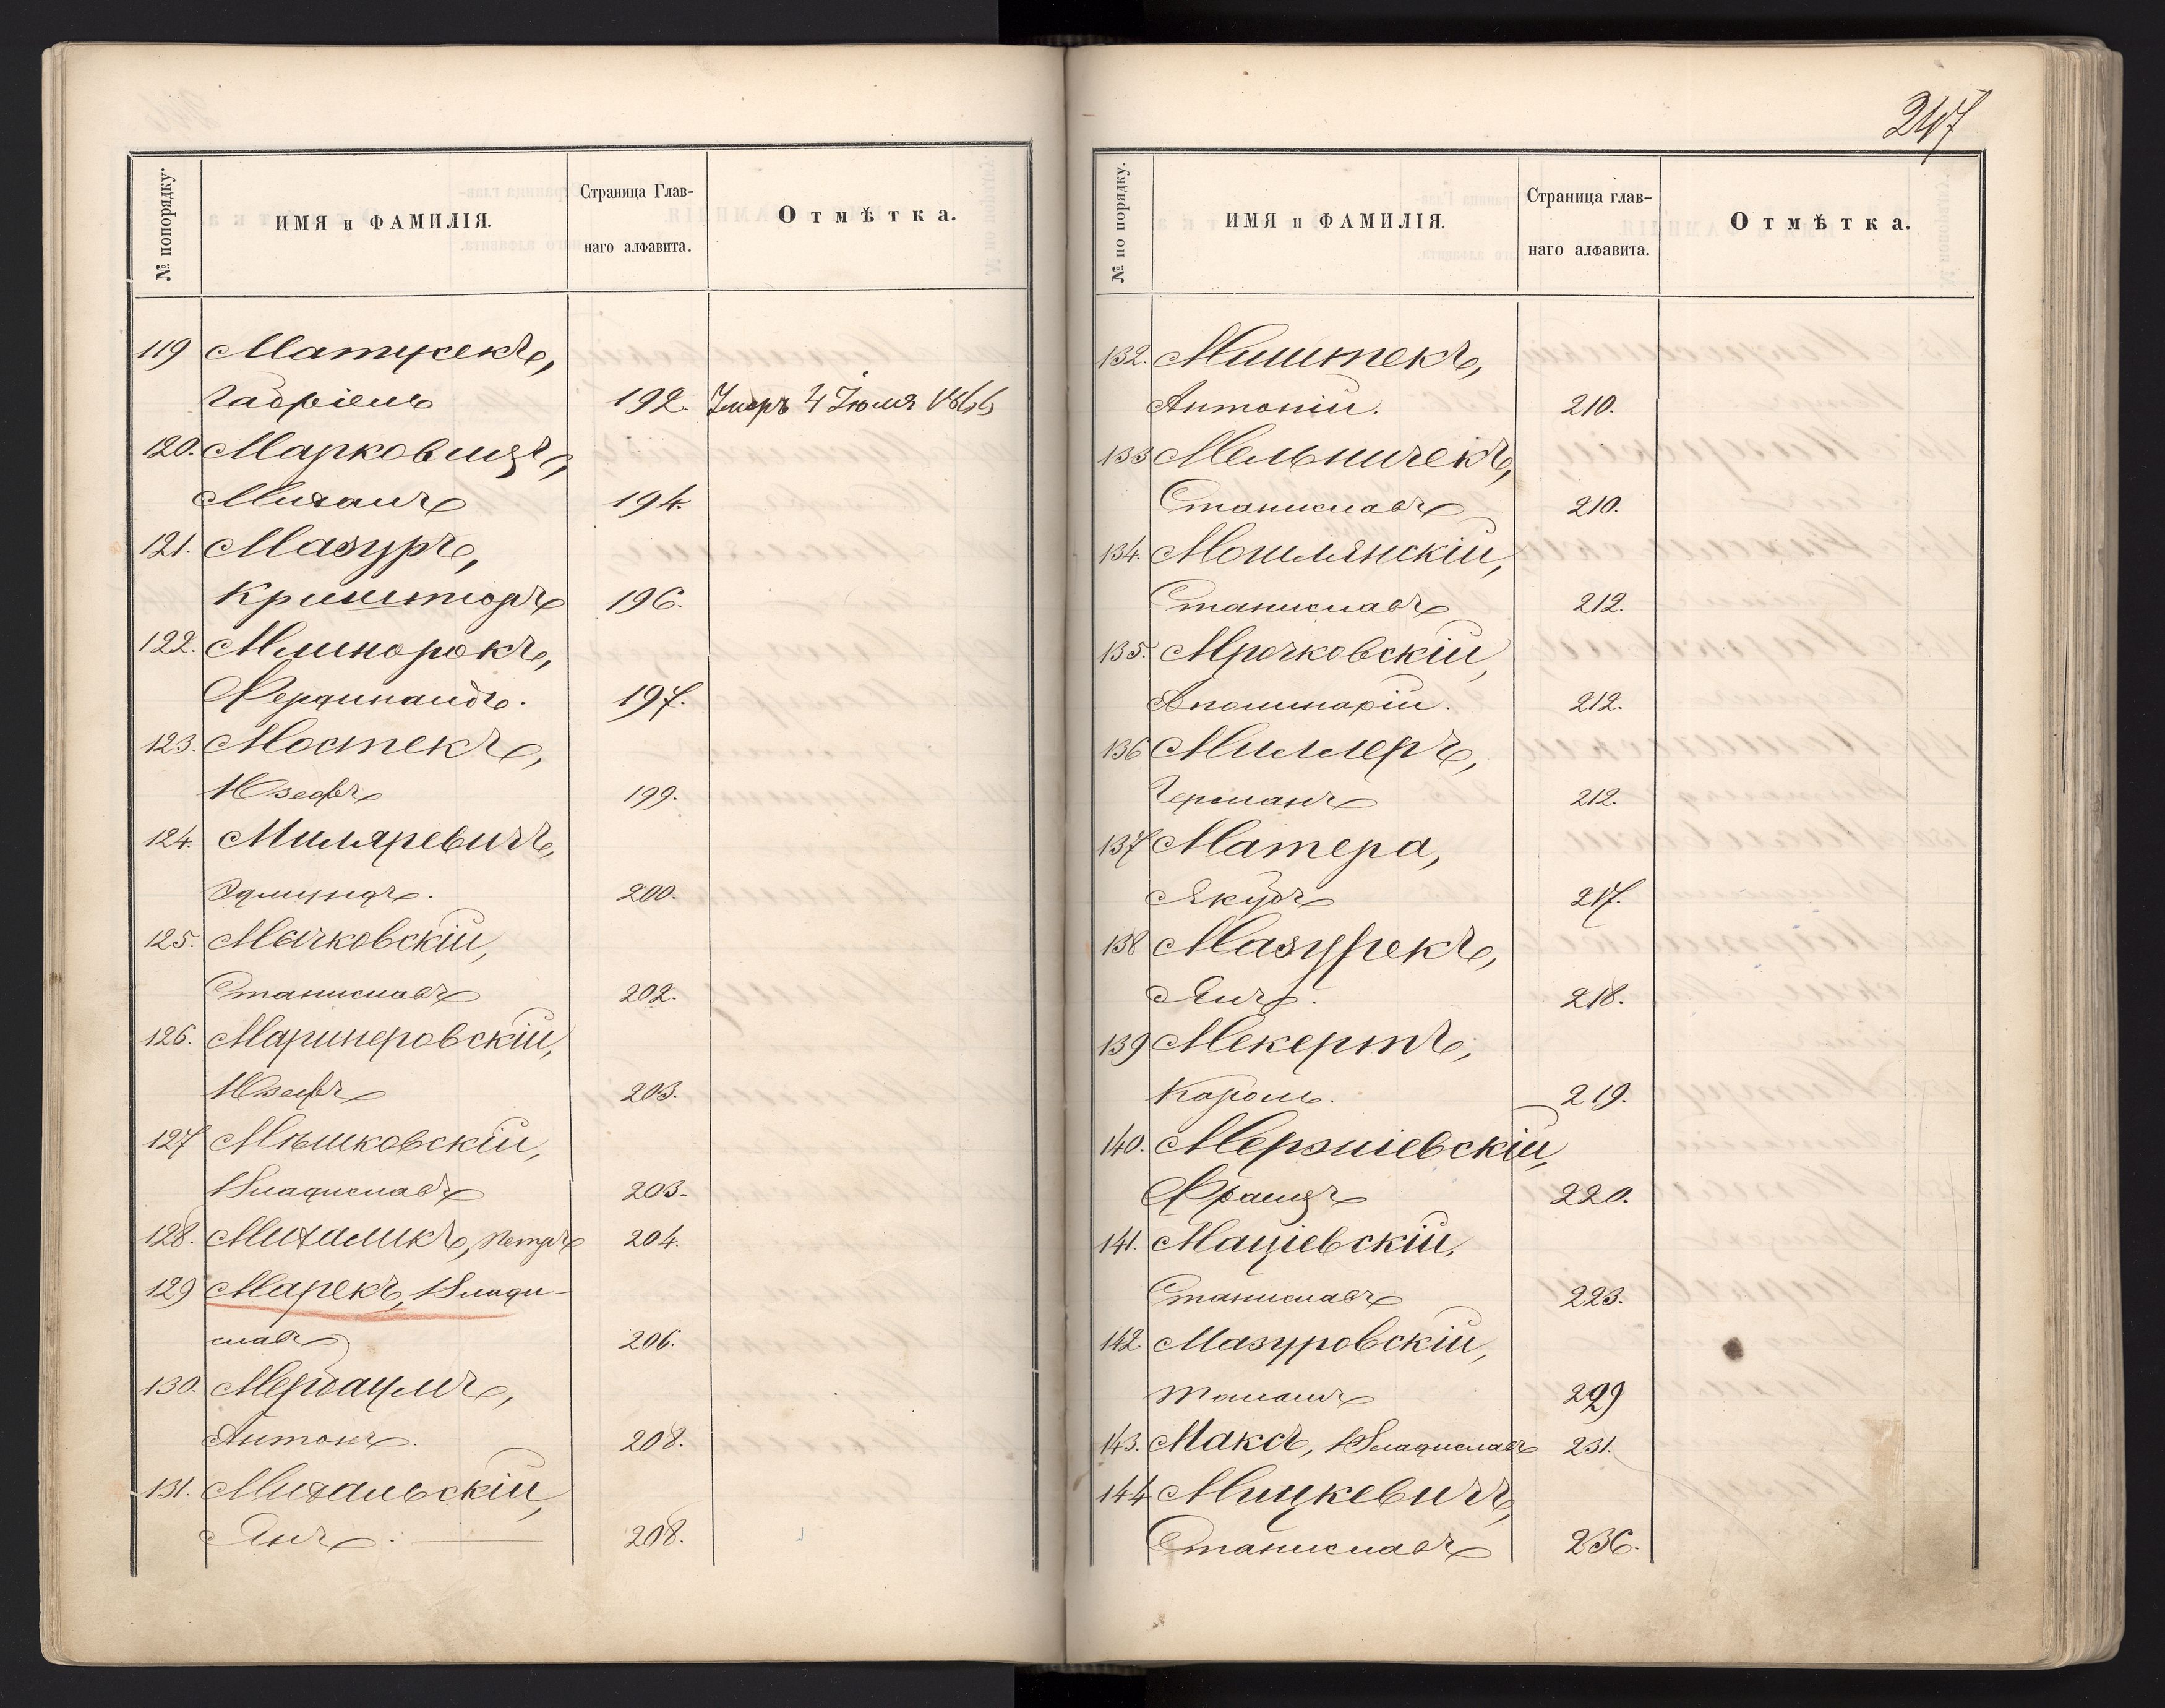 № попорядку.
ИМЯ и ФАМИЛІЯ.
Страница Глав-
наго алфавита.
Отмѣтка.
119 Матусекъ,
Габріель 192. Умеръ 4 Іюля 1866
120. Марковицъ,
Михалъ 194.
121. Мазуръ,
Криштофъ 196.
122. Млинорокъ,
Фердинандъ. 197.
123. Мостекъ,
Юзефъ 199.
124. Миляревичъ,
Эдмундъ. 200.
125. Мачковскій,
Станиславъ 202.
126. Маринеровскій,
Юзефъ 203.
127 Мѣшковскій,
Владиславъ 203.
128. Михаликъ, Петръ 204.
129 Марекъ, Влади-
славъ 206.
130. Мербаумъ,
Антонъ. 208.
131. Михальскій,
Янъ. 208.
247
№ по порядку.
ИМЯ и ФАМИЛІЯ.
Страница глав-
наго алфавита.
Отмѣтка.
132. Миштекъ,
Антоній. 210.
133 Мельничекъ,
Станиславъ 210.
134. Мошлянскій,
Станиславъ 212.
135. Мрочковскій,
Аполинарій. 212.
136 Миллеръ,
Германъ 212.
137 Матера,
Якубъ 217.
138 Мазурекъ,
Янъ. 218.
139 Мекертъ,
Кароль. 219.
140. Мерзніевскій,
Францъ 220.
141. Маціевскій,
Станиславъ 223.
142. Мазуровскій,
Томашъ 229
143. Максъ, Владиславъ 231.
144 Мицкевичъ,
Станиславъ 236.